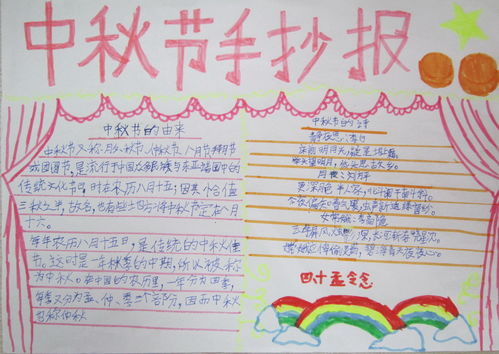 中秋节手抄报
中秋节的由来
中秋节又称月夕、秋节、仲秋节、八月节、拜月节
或团圆节，是流行于中国众多民族与东亚诸国中的
传统文化节日，时在农历八月十五；因其恰值
三秋之半，故名，也有些地方将中秋节定在八月
十六。
每年农历八月十五日，是传统的中秋佳
节。这时是一年秋季的中期，所以被称
为中秋。在中国的农历里，一年分为四季，
每季又分为孟、仲、季三个部分，因而中秋
也称仲秋
中秋节的
静夜思 李白
床前明月光，疑是地上霜。
举头望明月，低头思故乡。
月夜 刘方平
更深月色半人家，北斗阑干南斗斜。
今夜偏知春气暖，虫声新透绿窗纱。
嫦娥 李商隐
云母屏风烛影深，长河渐落晓星沉。
嫦娥应悔偷灵药，碧海青天夜夜心。
四十 孟念念